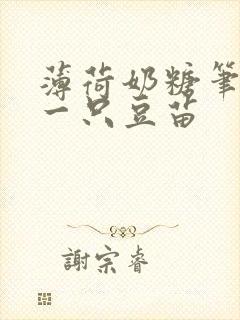 薄荷奶糖笔
一只豆苗
謝宗睿